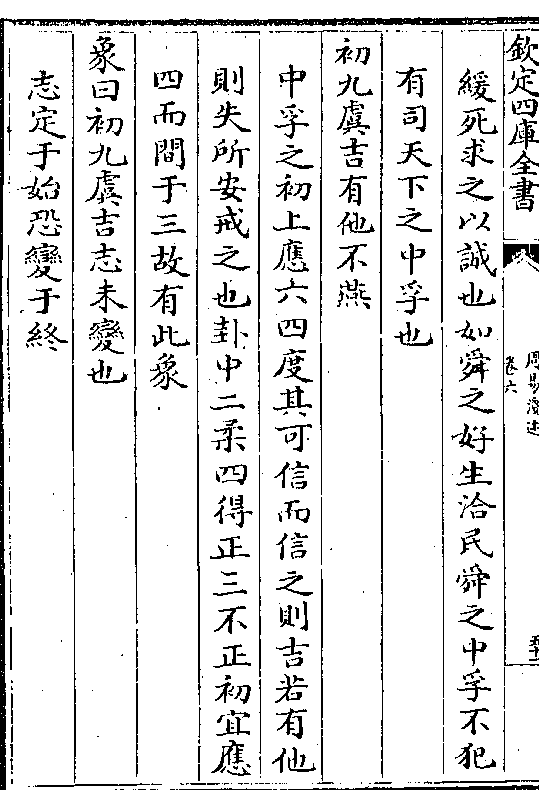 欽定四庫全書
周易淺述
卷六
緩死求之以誠也如舜之好生洽民舜之中孚不犯
有司天下之中孚也
初九虞吉有他不燕
中孚之初上應六四度其可信而信之則吉若有他
則失所安戒之也卦中二柔四得正三不正初宜應
四而間于三故有此象
象曰初九虞吉志未變也
志定于始恐變于終